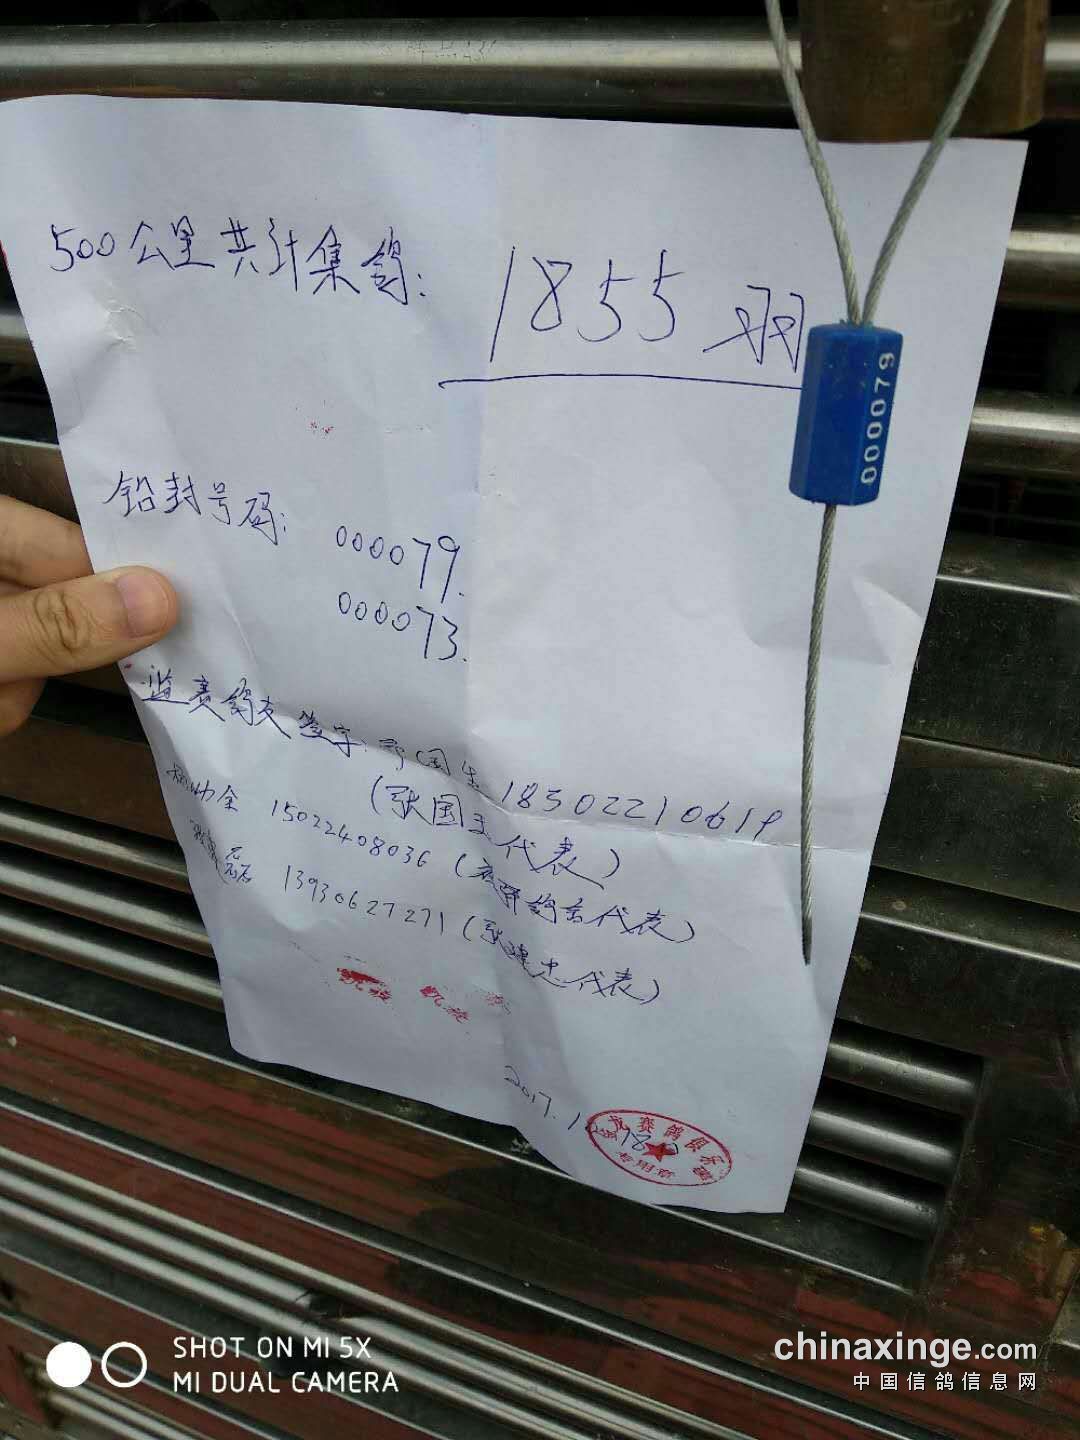 500公里共计集鸽:
1855羽
000079
铅封号码: 000079.
000073.
监赛鸽友签字: 国生 18502210619
(张国玉代表)
幼全 15022408036 (鸽舍代表)
磊 13930627271 (张建忠代表)
凯旋 凯旋
2017.1
赛鸽俱乐部
专用章
SHOT ON MI 5X
MI DUAL CAMERA
chinaxinge.com
中国信鸽信息网